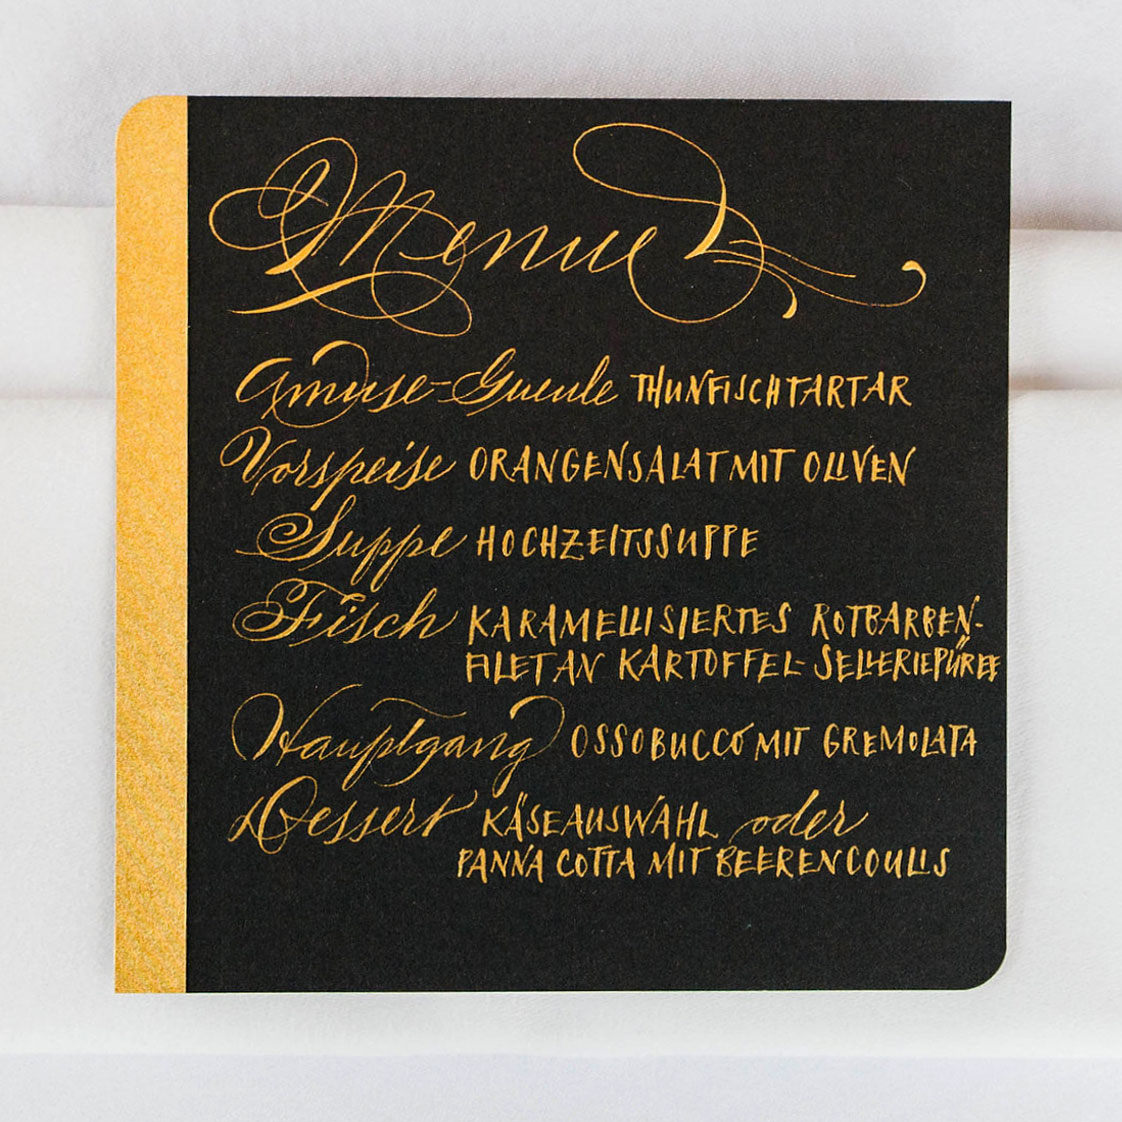 Menue
Amuse-Gueule THUNFISCHTARTAR
Vorspeise ORANGENSALAT MIT OLIVEN
Suppe HOCHZEITSSUPPE
Fisch KARAMELLISIERTES ROTBARBEN-
FILET AN KARTOFFEL-SELLERIEPÜREE
Hauptgang OSSOBUCCO MIT GREMOLATA
Dessert KÄSEAUSWAHL oder
PANNA COTTA MIT BEERENCOULIS